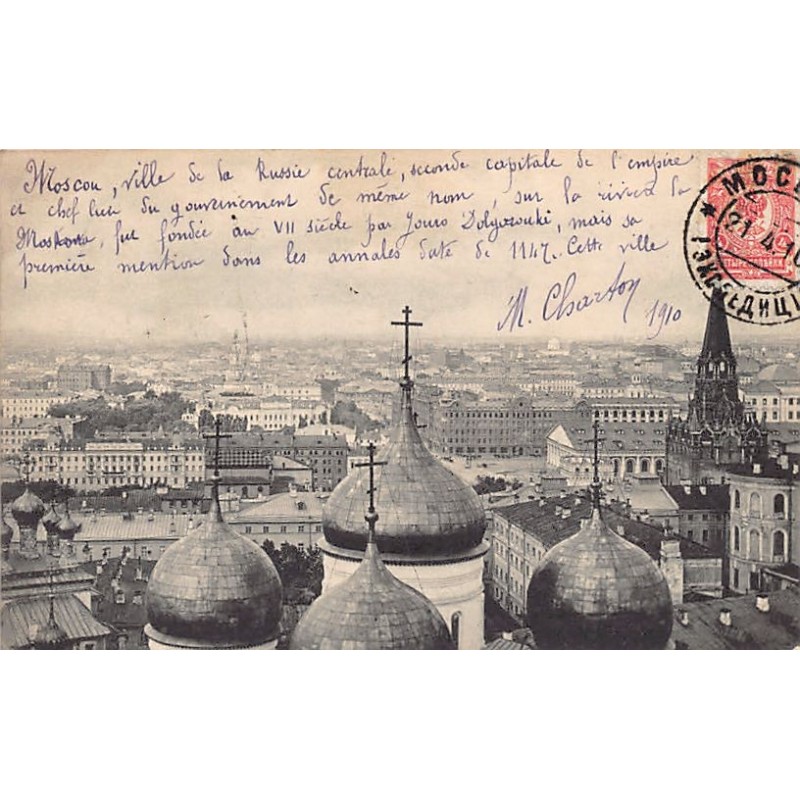 Moscou, ville de la Russie centrale, seconde capitale de l'empire
et chef lieu du gouvernement de même nom, sur la rivière la
Moskova, fut fondée au VII siècle par Jouro Dolgorouki, mais sa
première mention dans les annales date de 1147. Cette ville
M. Charton 1910
МОСК
21.4.10
ЭКСПЕДИЦІ